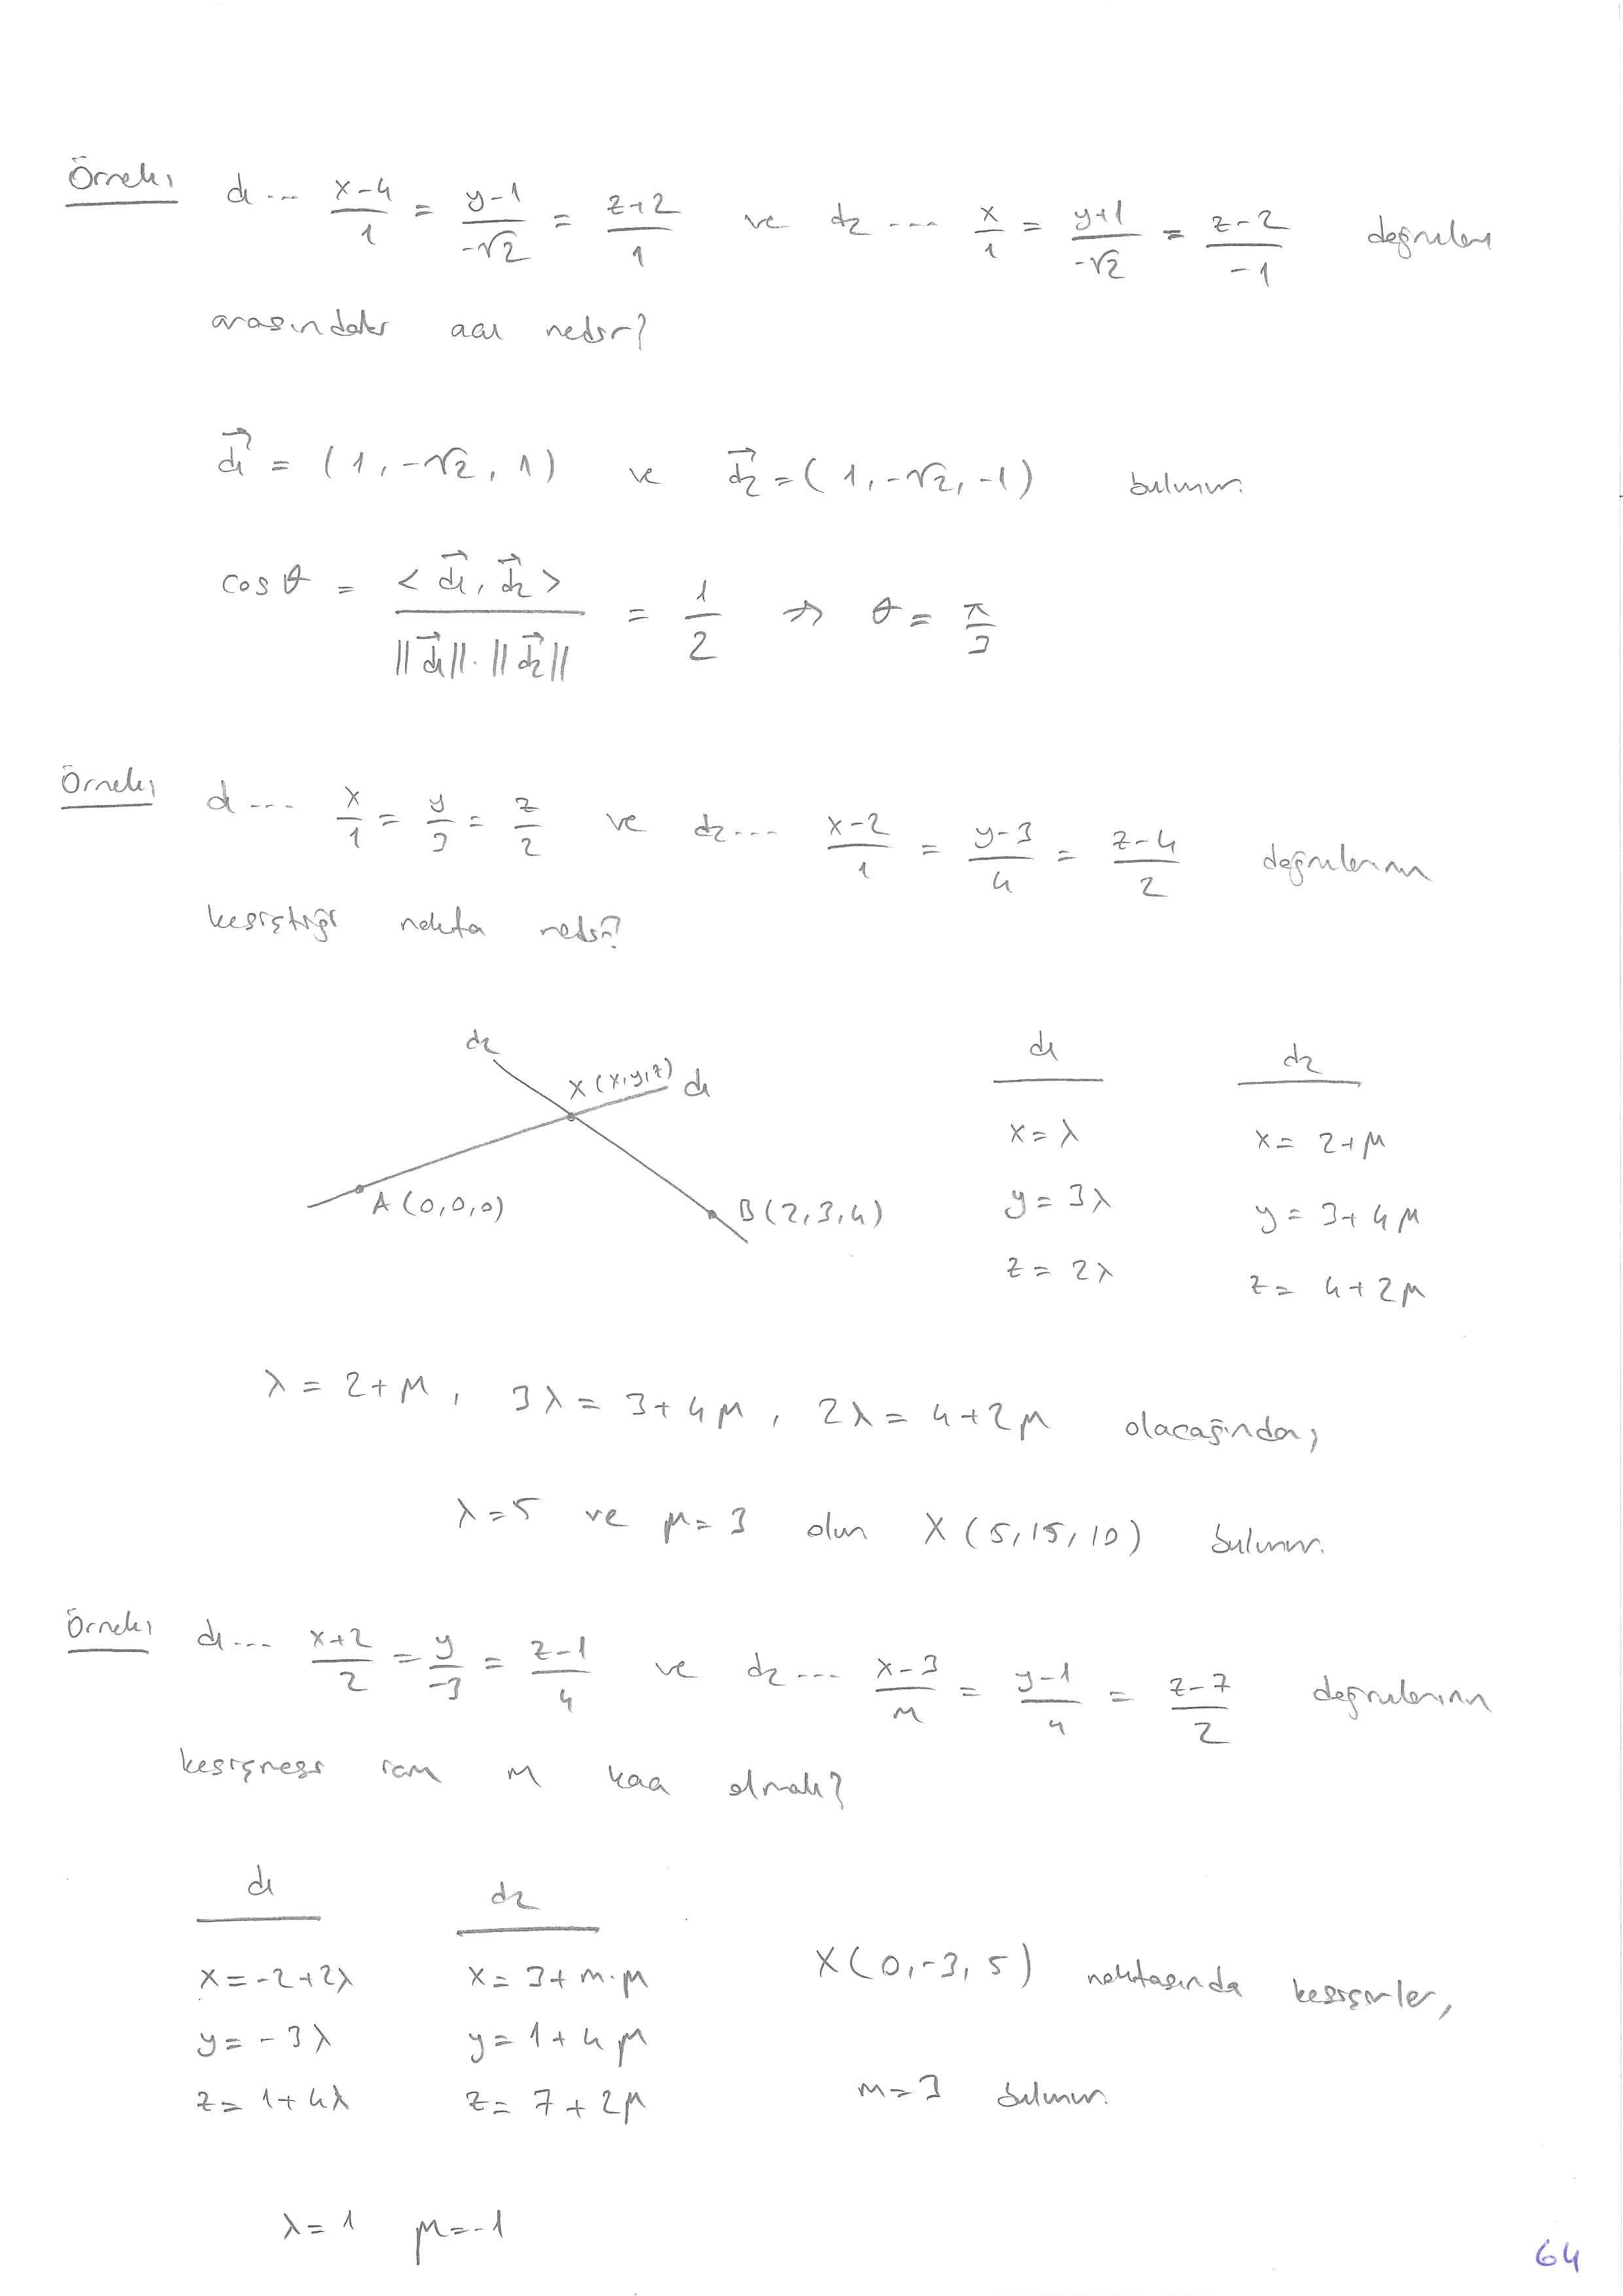 Örnek: d1 ... (x-4)/1 = (y-1)/(-√2) = (z+2)/1 ve d2 ... x/1 = (y+1)/(-√2) = (z-2)/(-1) doğruları
arasındaki açı nedir?
d1⃗ = (1, -√2, 1) ve d2⃗ = (1, -√2, -1) bulunur.
cos θ = <d1⃗, d2⃗> / (||d1⃗|| . ||d2⃗||) = 1/2 ⇒ θ = π/3
Örnek: d1 ... x/1 = y/3 = z/2 ve d2 ... (x-2)/1 = (y-3)/4 = (z-4)/2 doğrularının
kesiştiği nokta nedir?
d2
X(x,y,z) d1
A(0,0,0)
B(2,3,4)
d1 d2
x = λ x = 2+μ
y = 3λ y = 3+4μ
z = 2λ z = 4+2μ
λ = 2+μ, 3λ = 3+4μ, 2λ = 4+2μ olacağından,
λ = 5 ve μ = 3 olur X(5,15,10) bulunur.
Örnek: d1 ... (x+2)/2 = y/(-3) = (z-1)/4 ve d2 ... (x-3)/m = (y-1)/4 = (z-7)/2 doğrularının
kesişmesi için m kaç olmalı?
d1 d2
x = -2+2λ x = 3+m.μ X(0,-3,5) noktasında kesişirler,
y = -3λ y = 1+4μ
z = 1+4λ z = 7+2μ m = 3 bulunur.
λ = 1 μ = -1
64